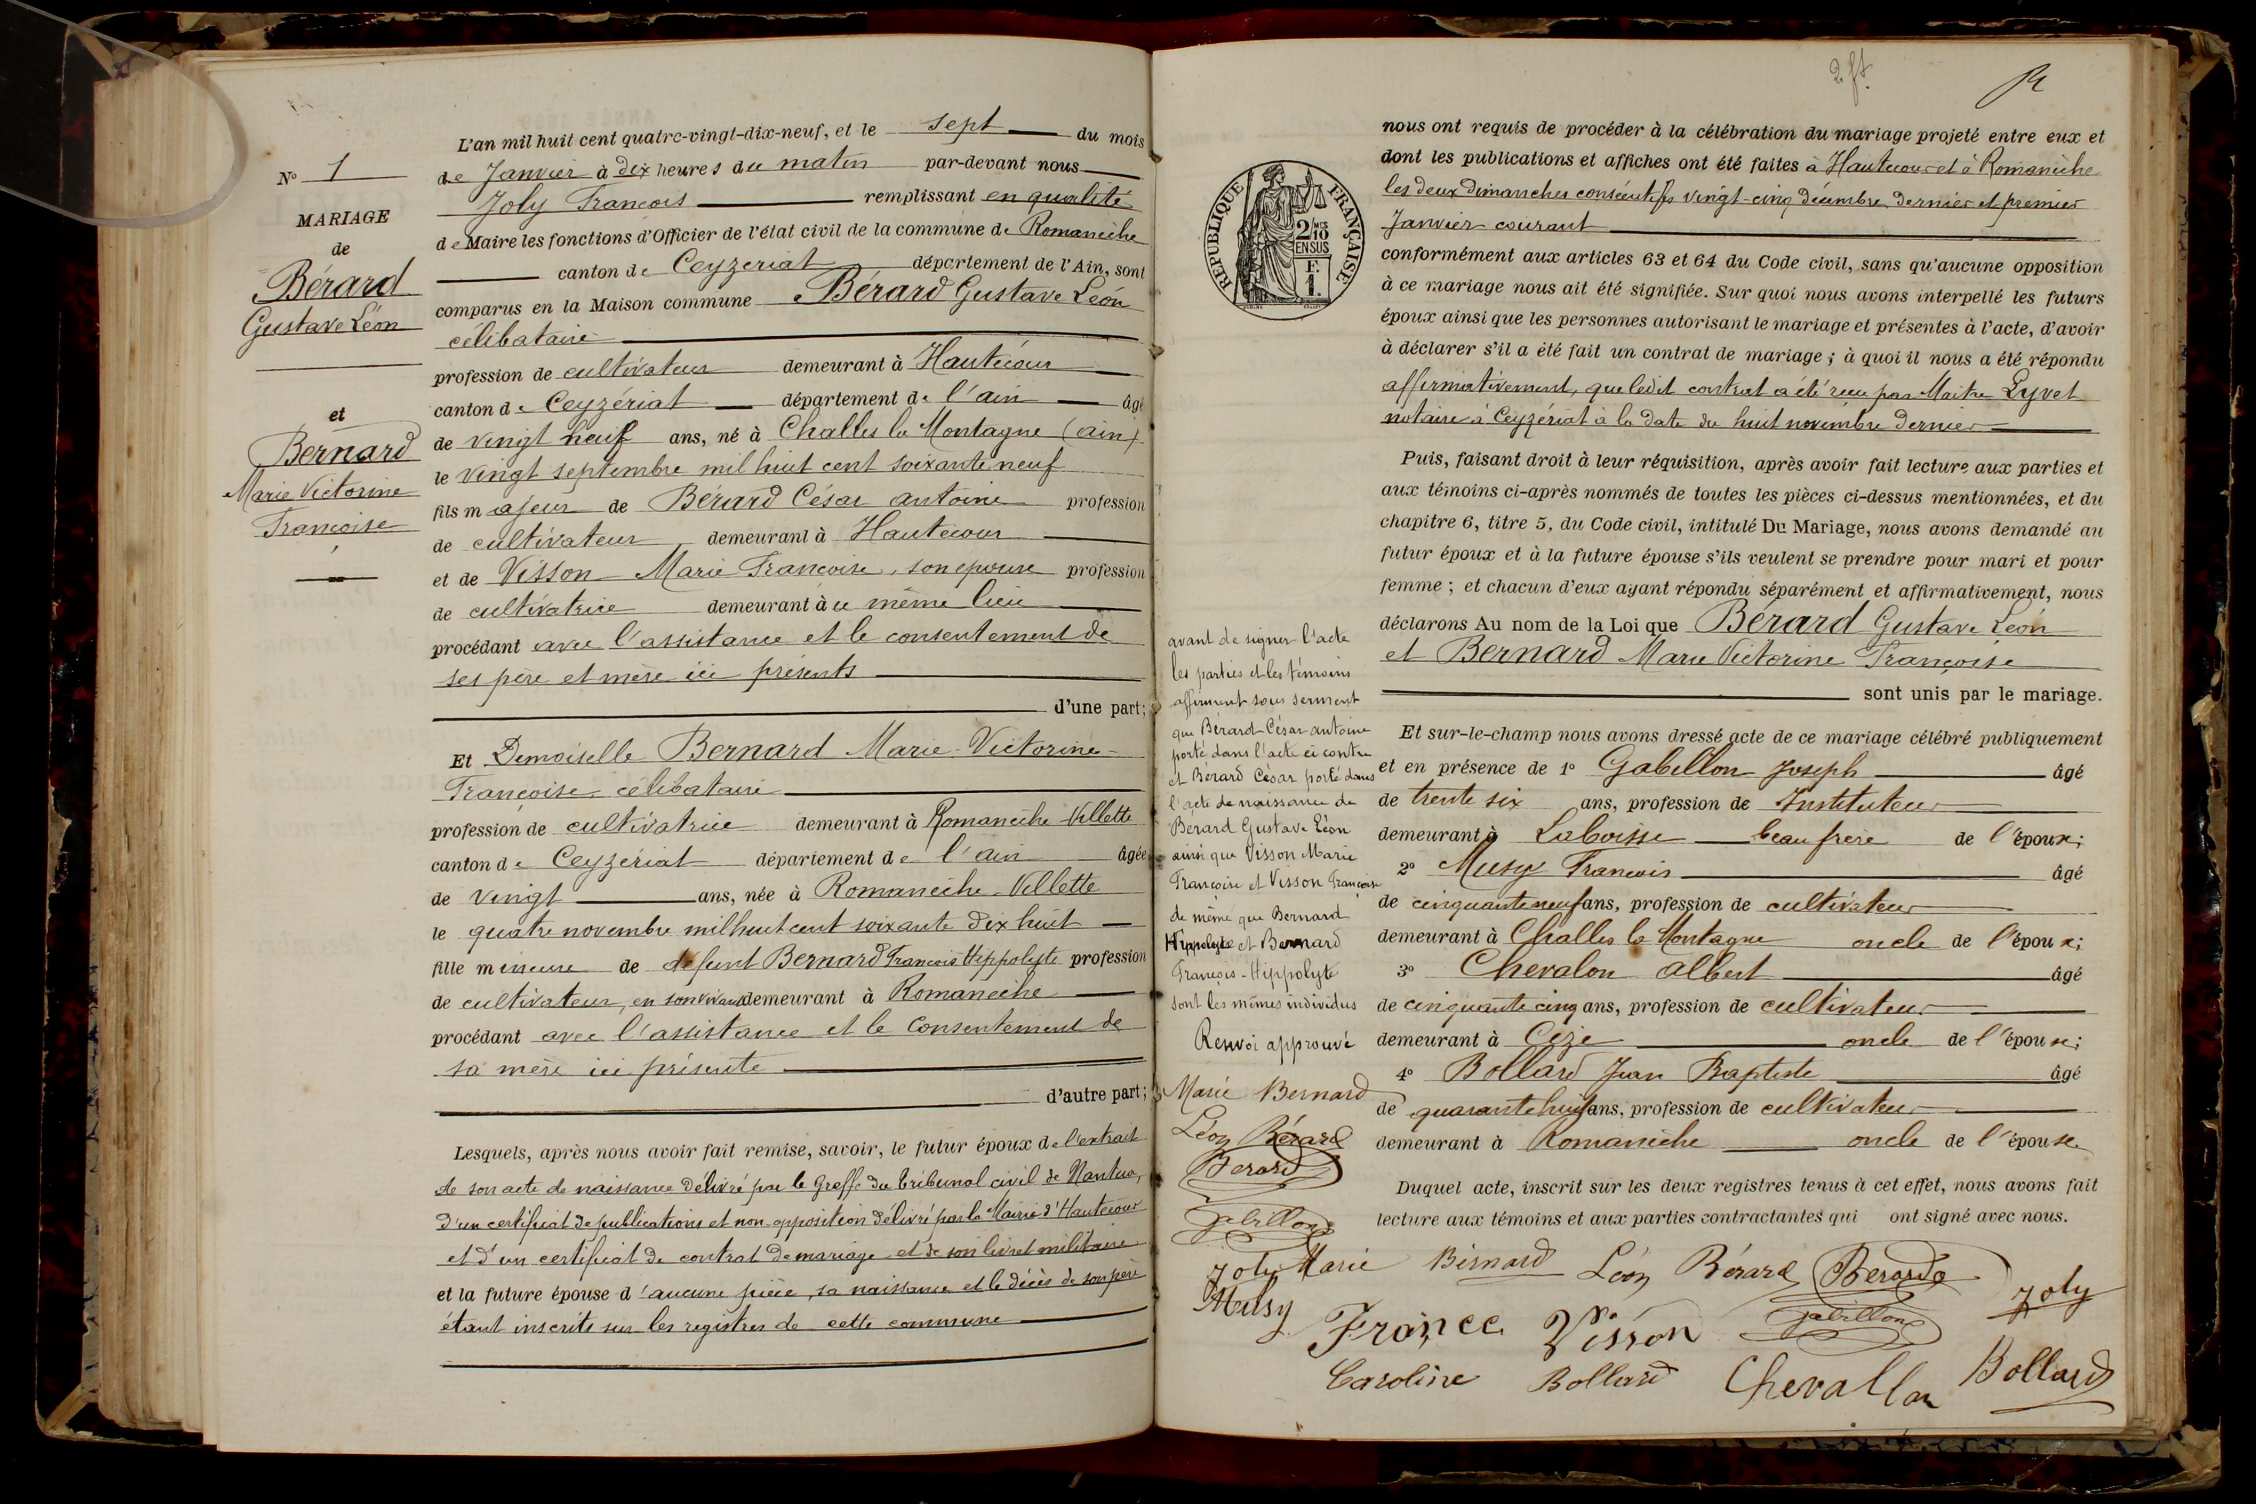 N° 1
MARIAGE
de
Bérard
Gustave Léon
et
Bernard
Marie Victorine
Françoise
L'an mil huit cent quatre-vingt-dix-neuf, et le sept du mois
de Janvier à dix heures du matin par-devant nous
Joly François remplissant en qualité
de Maire les fonctions d'Officier de l'état civil de la commune de Romanèche
canton de Ceyzeriat département de l'Ain, sont
comparus en la Maison commune Bérard Gustave Léon
célibataire
profession de cultivateur demeurant à Hautecour
canton de Ceyzériat département de l'ain âgé
de vingt neuf ans, né à Challes la Montagne (ain)
le vingt septembre mil huit cent soixante neuf
fils majeur de Bérard César antoine profession
de cultivateur demeurant à Hautecour
et de Visson Marie Françoise, son epouse profession
de cultivatrice demeurant à ce même lieu
procédant avec l'assistance et le consentement de
ses père et mère ici présents
d'une part;
Et Demoiselle Bernard Marie-Victorine-
Françoise célibataire
profession de cultivatrice demeurant à Romanèche-Villette
canton de Ceyzériat département de l'ain âgée
de vingt ans, née à Romanèche-Villette
le quatre novembre mil huit cent soixante dix huit
fille mineure de défunt Bernard François Hippolyte profession
de cultivateur, en son vivant demeurant à Romanèche
procédant avec l'assistance et le consentement de
sa mère ici présente
d'autre part;
Lesquels, après nous avoir fait remise, savoir, le futur époux de l'extrait
de son acte de naissance délivré par le Greffe du tribunal civil de Nantua,
d'un certificat de publications et non-opposition délivré par la Mairie d'Hautecour
et d'un certificat de contrat de mariage et de son livret militaire
et la future épouse d'aucune pièce, sa naissance et le décès de son père
étant inscrits sur les registres de cette commune
2 ft.
RÉPUBLIQUE FRANÇAISE
2/10
EN SUS
F.
1.
nous ont requis de procéder à la célébration du mariage projeté entre eux et
dont les publications et affiches ont été faites à Hautecour et à Romanèche
les deux dimanches consécutifs vingt-cinq décembre dernier et premier
Janvier courant
conformément aux articles 63 et 64 du Code civil, sans qu'aucune opposition
à ce mariage nous ait été signifiée. Sur quoi nous avons interpellé les futurs
époux ainsi que les personnes autorisant le mariage et présentes à l'acte, d'avoir
à déclarer s'il a été fait un contrat de mariage ; à quoi il nous a été répondu
affirmativement, que ledit contrat a été recu par Maitre Lyvet
notaire à Ceyzériat à la date du huit novembre dernier
Puis, faisant droit à leur réquisition, après avoir fait lecture aux parties et
aux témoins ci-après nommés de toutes les pièces ci-dessus mentionnées, et du
chapitre 6, titre 5, du Code civil, intitulé Du Mariage, nous avons demandé au
futur époux et à la future épouse s'ils veulent se prendre pour mari et pour
femme ; et chacun d'eux ayant répondu séparément et affirmativement, nous
déclarons Au nom de la Loi que Bérard Gustave Léon
et Bernard Marie Victorine Françoise
sont unis par le mariage.
Et sur-le-champ nous avons dressé acte de ce mariage célébré publiquement
et en présence de 1° Gabillon Joseph âgé
de trente six ans, profession de Instituteur
demeurant à Laboisse beau frère de l'époux;
2° Musy François âgé
de cinquante neuf ans, profession de cultivateur
demeurant à Challes la Montagne oncle de l'époux;
3° Chevalon albert âgé
de cinquante cinq ans, profession de cultivateur
demeurant à Cize oncle de l'épouse;
4° Bollard Jean Baptiste âgé
de quarante huit ans, profession de cultivateur
demeurant à Romanèche oncle de l'épouse
Duquel acte, inscrit sur les deux registres tenus à cet effet, nous avons fait
lecture aux témoins et aux parties contractantes qui ont signé avec nous.
avant de signer l'acte
les parties et les témoins
affirment sous serment
que Bérard César antoine
porté dans l'acte ci contre
et Bérard César porté dans
l'acte de naissance de
Bérard Gustave Léon
ainsi que Visson Marie
Françoise et Visson Françoise
de même que Bernard
Hippolyte et Bernard
François-Hippolyte
sont les mêmes individus
Renvoi approuvé
Marie Bernard
Léon Bérard
Berard
Gabillon
Joly Marie Bernard Léon Bérard Berard
Musy Joly
France Visson Gabillon
Caroline Bollard Chevallon Bollard